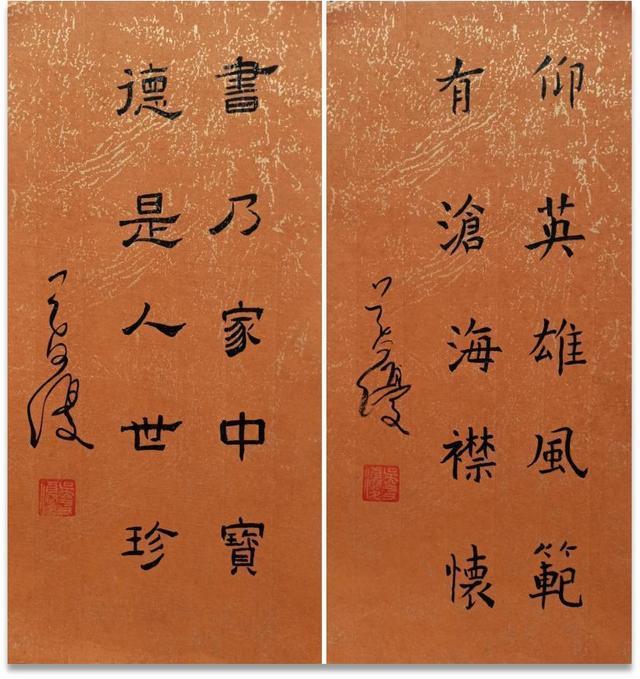 仰英雄風範
有滄海襟懷
書乃家中寶
德是人世珍